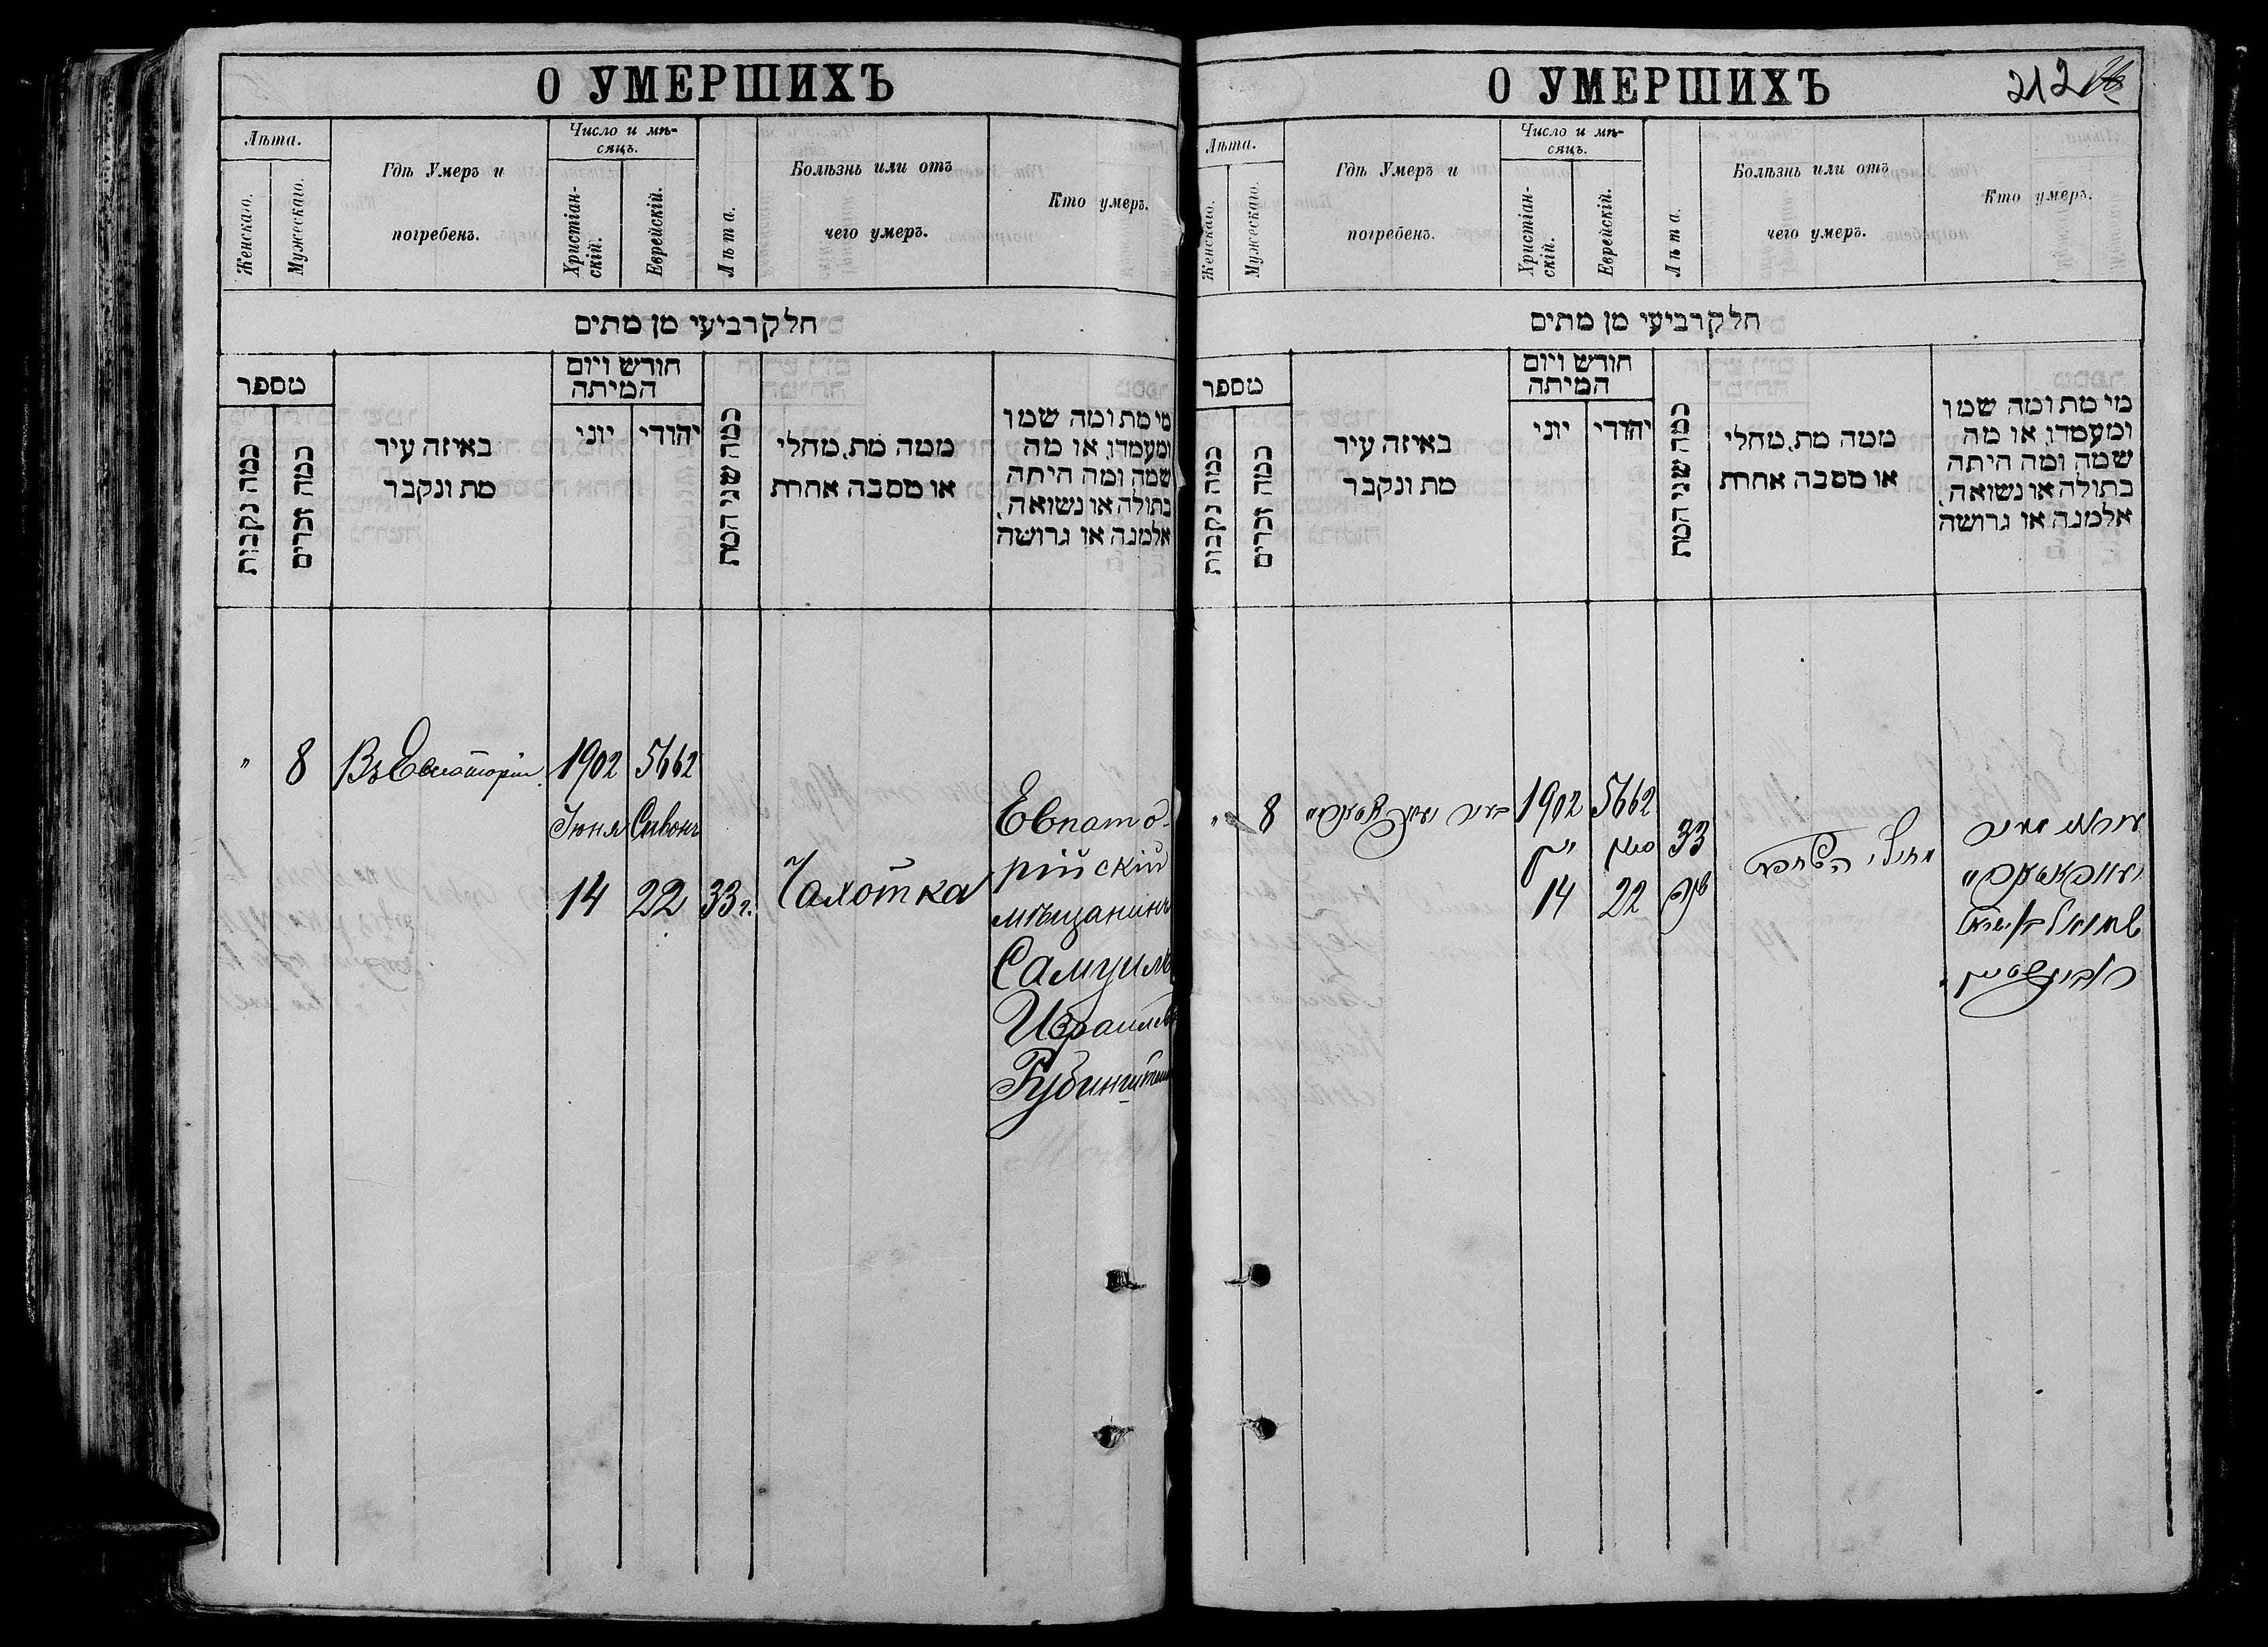 О УМЕРШИХЪ
Лѣта.
Женскаго.
Мужескаго.
Гдѣ Умеръ и
погребенъ.
Число и мѣ-
сяцъ.
Христіан-
скій.
Еврейскій.
Лѣта.
Болѣзнь или отъ
чего умеръ.
Кто умеръ.
חלק רביעי מן מתים
מספר
כמה נקבות
כמה זכרים
באיזה עיר
מת ונקבר
חודש ויום
המיתה
יוני
יהודי
כמה שני המת
ממה מת, מחלי
או מסבה אחרת
מי מת ומה שמו
ומעמדו, או מה
שמה ומה היתה
בתולה או נשואה,
אלמנה או גרושה
"
8
Въ Евпаторіи
1902
Іюня
14
5662
Сивонъ
22
33 г.
Чахотка
Евпато-
рійскій
мѣщанинъ
Самуилъ
Израилев
Рубинштейн
О УМЕРШИХЪ
212
Лѣта.
Женскаго.
Мужескаго.
Гдѣ Умеръ и
погребенъ.
Число и мѣ-
сяцъ.
Христіан-
скій.
Еврейскій.
Лѣта.
Болѣзнь или отъ
чего умеръ.
Кто умеръ.
חלק רביעי מן מתים
מספר
כמה נקבות
כמה זכרים
באיזה עיר
מת ונקבר
חודש ויום
המיתה
יוני
יהודי
כמה שני המת
ממה מת, מחלי
או מסבה אחרת
מי מת ומה שמו
ומעמדו, או מה
שמה ומה היתה
בתולה או נשואה,
אלמנה או גרושה
"
8
1902
יוני
14
5662
סיון
22
33
שנה
מחולי השחפת
שמואל בן ישראל
רובינשטיין